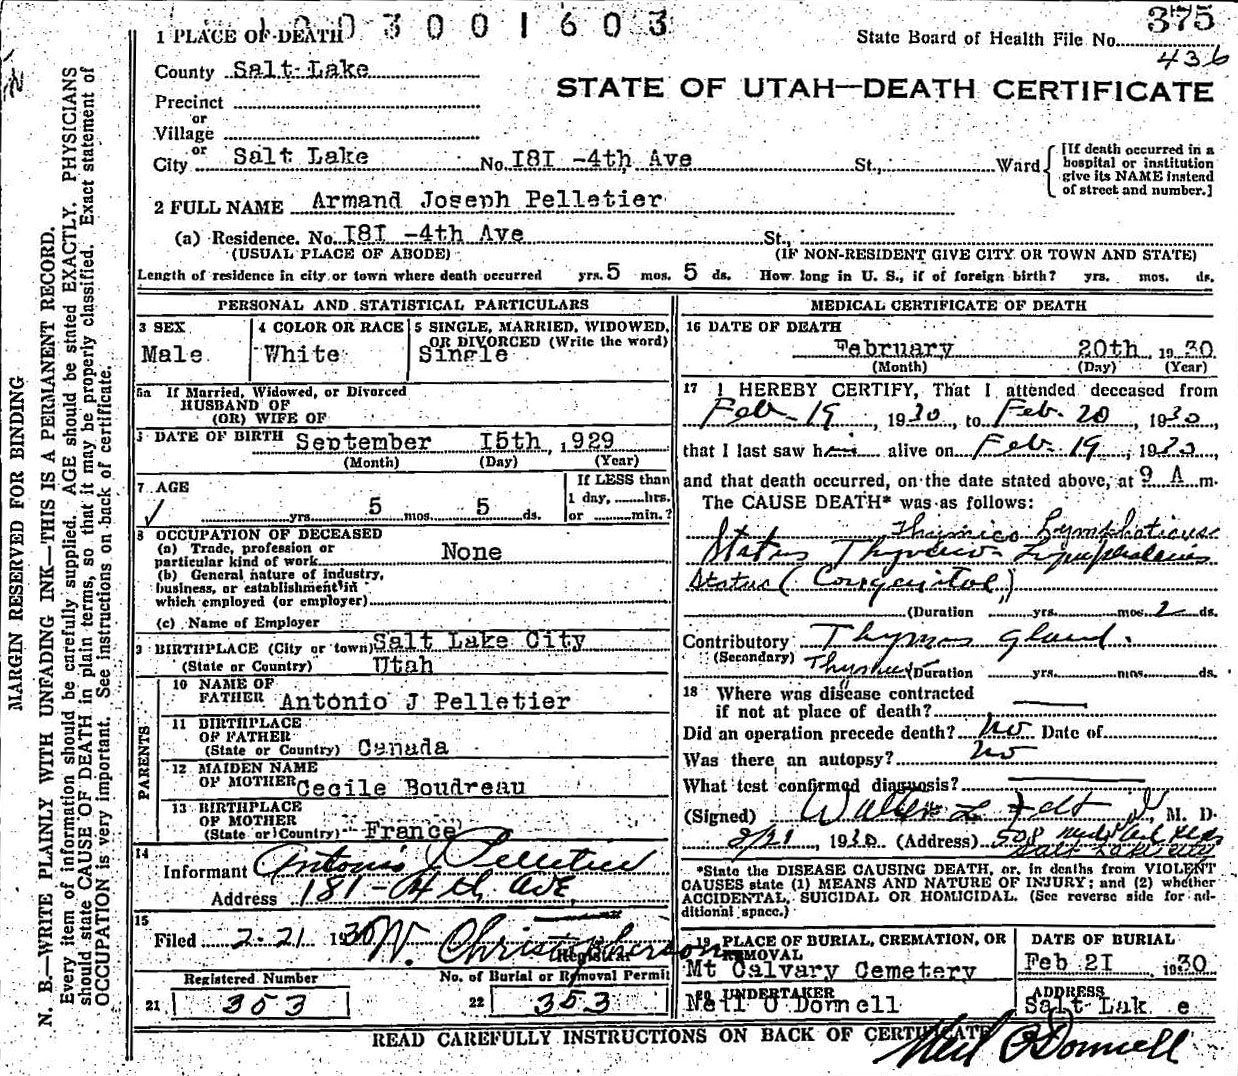 1003001603
375
1 PLACE OF DEATH
State Board of Health File No.
436
County Salt Lake
STATE OF UTAH—DEATH CERTIFICATE
Precinct
or
Village
or
City Salt Lake No. I8I -4th Ave St., Ward
[If death occurred in a
hospital or institution
give its NAME instead
of street and number.]
2 FULL NAME Armand Joseph Pelletier
(a) Residence. No. I8I -4th Ave St.,
(USUAL PLACE OF ABODE) (IF NON-RESIDENT GIVE CITY OR TOWN AND STATE)
Length of residence in city or town where death occurred yrs. 5 mos. 5 ds. How long in U. S., if of foreign birth? yrs. mos. ds.
PERSONAL AND STATISTICAL PARTICULARS
3 SEX
Male
4 COLOR OR RACE
White
5 SINGLE, MARRIED, WIDOWED,
OR DIVORCED (Write the word)
Single
5a If Married, Widowed, or Divorced
HUSBAND OF
(OR) WIFE OF
DATE OF BIRTH September I5th, 1929
(Month) (Day) (Year)
7 AGE
5 5
yrs. mos. ds.
If LESS than
1 day, hrs.
or min.?
8 OCCUPATION OF DECEASED
(a) Trade, profession or
particular kind of work None
(b) General nature of industry,
business, or establishment in
which employed (or employer)
(c) Name of Employer
9 BIRTHPLACE (City or town) Salt Lake City
(State or Country) Utah
PARENTS
10 NAME OF
FATHER Antonio J Pelletier
11 BIRTHPLACE
OF FATHER
(State or Country) Canada
12 MAIDEN NAME
OF MOTHER Cecile Boudreau
13 BIRTHPLACE
OF MOTHER
(State or Country) France
14
Informant Antonio J Pelletier
Address 181-4th Ave,
15
Filed 2-21 1930 W. Christopherson
Registrar
Registered Number No. of Burial or Removal Permit
21 353 22 353
MEDICAL CERTIFICATE OF DEATH
16 DATE OF DEATH
February 20th 1930
(Month) (Day) (Year)
17 I HEREBY CERTIFY, That I attended deceased from
Feb-19, 1930, to Feb. 20, 1930,
that I last saw him alive on Feb-19, 1930,
and that death occurred, on the date stated above, at 9 A m.
The CAUSE DEATH* was as follows:
Thymico Lymphaticus
Status
Status (Congenital)
(Duration yrs. mos. 2 ds.
Contributory Thymus gland.
(Secondary) (Duration yrs. mos. ds.
18 Where was disease contracted
if not at place of death?
Did an operation precede death? no Date of
Was there an autopsy? no
What test confirmed diagnosis?
(Signed) M. D.
2/21, 1930 (Address) 508
Salt Lake City
*State the DISEASE CAUSING DEATH, or, in deaths from VIOLENT
CAUSES state (1) MEANS AND NATURE OF INJURY; and (2) whether
ACCIDENTAL, SUICIDAL OR HOMICIDAL. (See reverse side for ad-
ditional space.)
19 PLACE OF BURIAL, CREMATION, OR
REMOVAL
Mt Calvary Cemetery
DATE OF BURIAL
Feb 2I 1930
20 UNDERTAKER
Neil O'Donnell
ADDRESS
Salt Lak e
READ CAREFULLY INSTRUCTIONS ON BACK OF CERTIFICATE
Neil O'Donnell
MARGIN RESERVED FOR BINDING
N. B.—WRITE PLAINLY WITH UNFADING INK—THIS IS A PERMANENT RECORD.
Every item of information should be carefully supplied. AGE should be stated EXACTLY. PHYSICIANS
should state CAUSE OF DEATH in plain terms, so that it may be properly classified. Exact statement of
OCCUPATION is very important. See instructions on back of certificate.